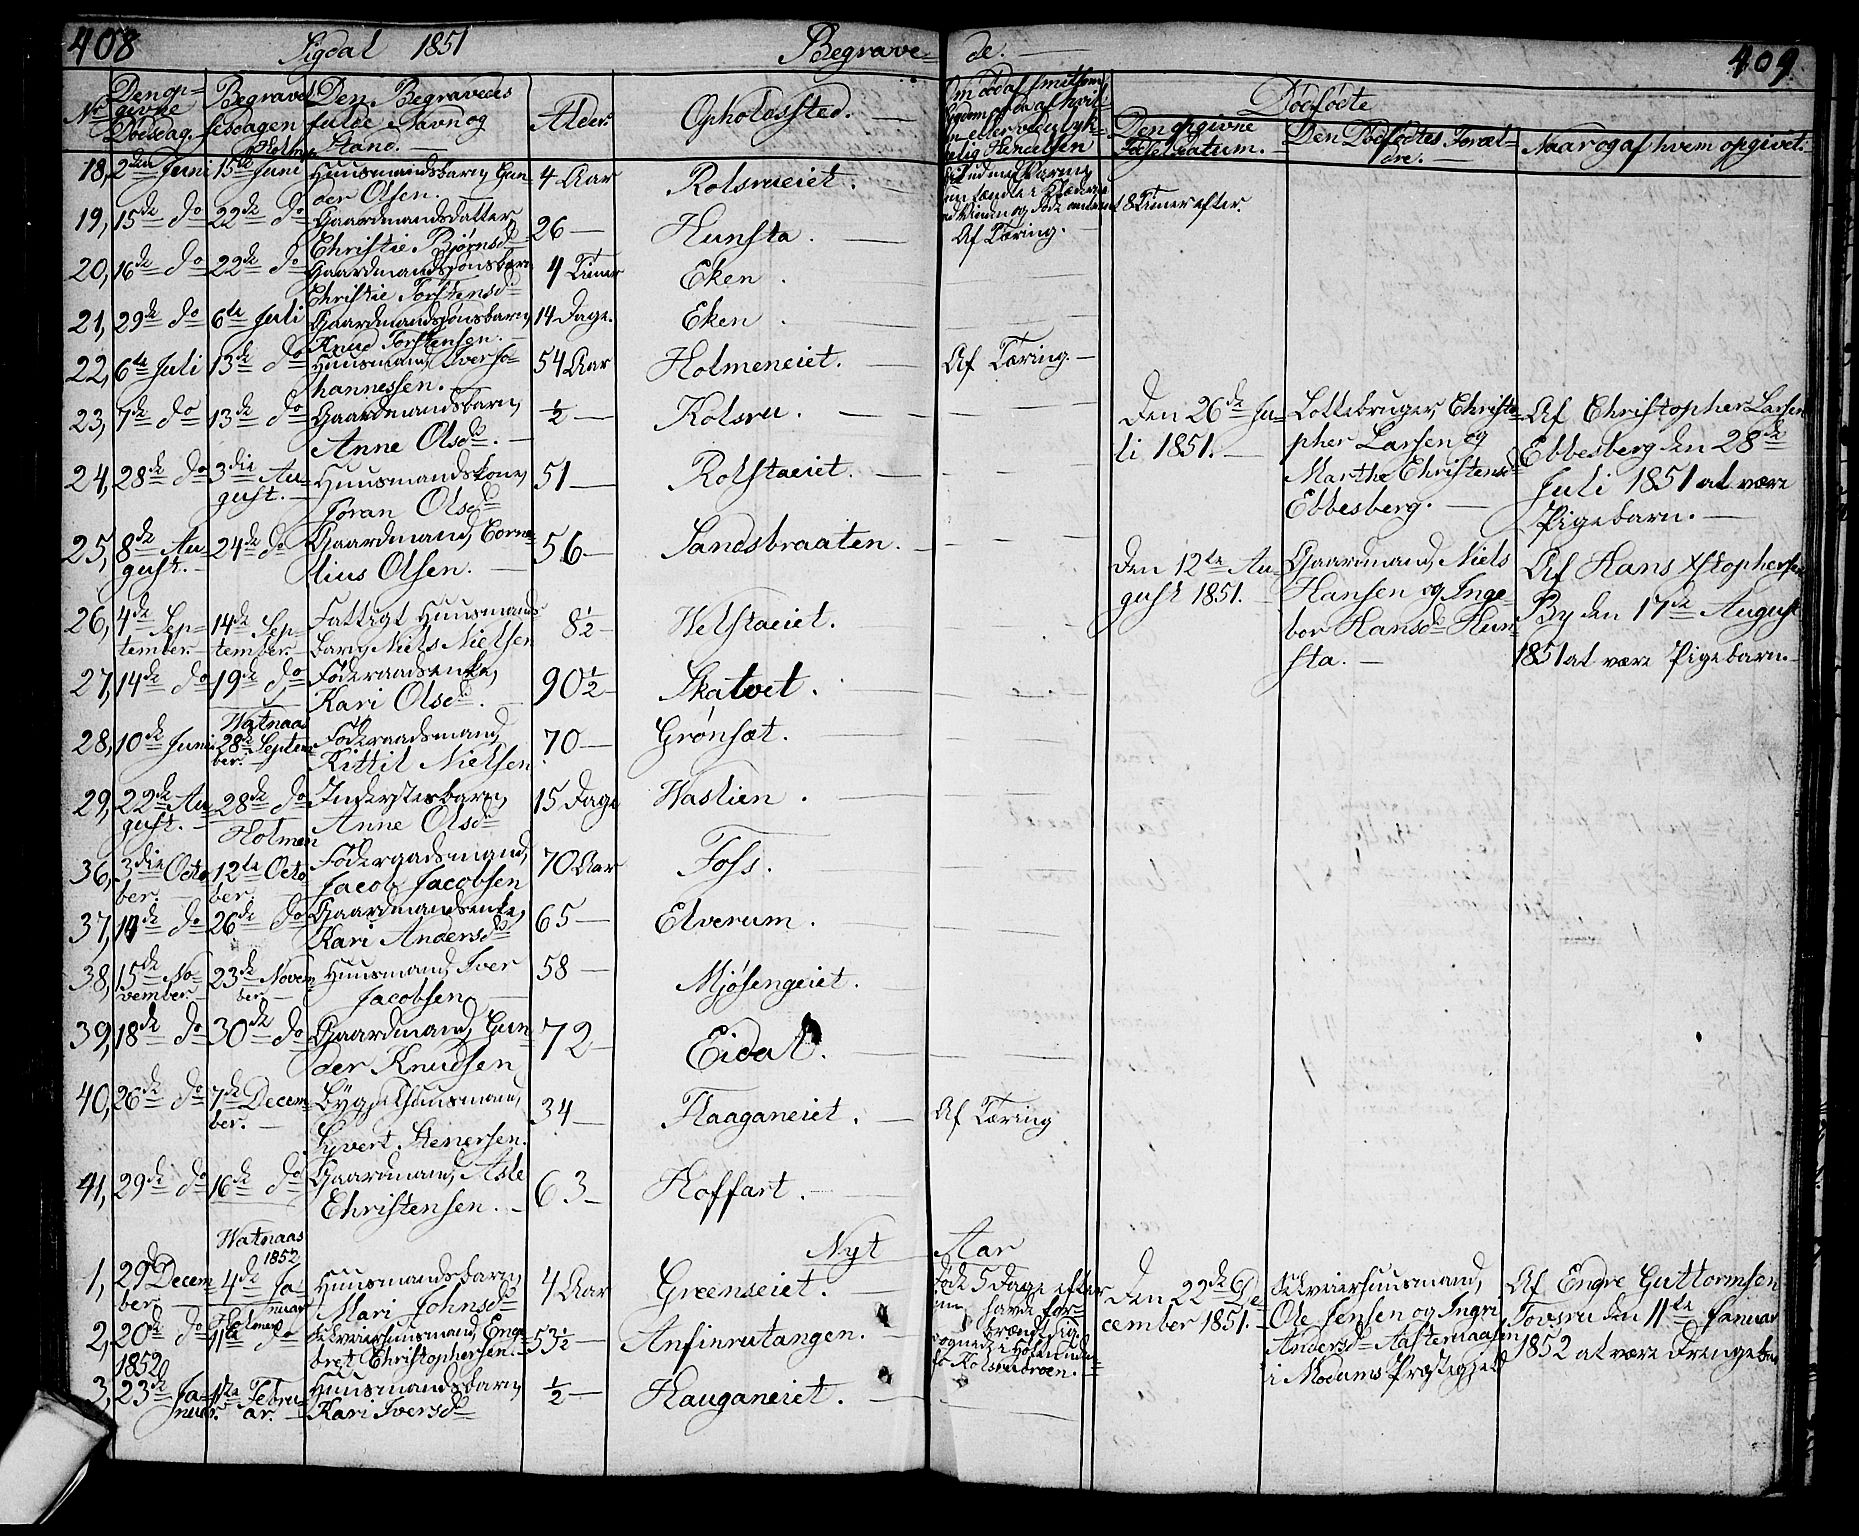 408 Sigdal 1851 Begrave= de. 409
No Den op=givne Dødsdag. Begravelsesdagen Den Begravedes fulde Navn og Stand. Alder. Opholdssted. Dødfødte
Den opgivne Fødselsdatum. Den Dødfødtes Foræl=dre. Naar og af hvem opgivet.
Holmen
18, 2den Juni 15de Juni Huusmandsbarn, Gun=
der Olsen 4 Aar Rolsrueiet. 18 Timer efter.
19, 15de do 22de do Gaardmandsdatter
Christie Bjørnsd. 26 — Hunsta. Af Tæring.
20, 16de do 22de do Gaardmandssønsbarn
Christie Torstensd. 4 Timer Eken.
21, 29de do 6te Juli Gaardmandssønsbarn,
Knud Torstensen. 14 Dage. Eken
22, 6te Juli 13de do Huusmand, Iver Jo=
hannessen. 54 Aar Holmeneiet. Af Tæring.
23, 7de do 13de do Gaardmandsbarn,
Anne Olsd. ½ — Kolsru.
Den 26de Ju=
li 1851.
Lottebruger, Christo=
pher Larsen og
Marthe Christensd.
Ebbesberg.
Af Christopher Larsen
Ebbesberg den 28de
Juli 1851 at være
Pigebarn.
24, 28de do 3die Au=
gust. Huusmandskone,
Jøran Olsd. 51 — Rolstaeiet.
25, 8de Au=
gust. 24de do Gaardmand, Corne=
lius Olsen. 56 — Sandsbraaten.
Den 12te Au=
gust 1851.
Gaardmand, Niels
Hansen og Inge=
bor Hansd. Hun=
sta.
Af Hans Xstophersen
By den 17de August
1851 at være Pigebarn.
26, 4de Sep=
tember. 14de Sep=
tember. Fattigt Huusmands
barn, Niels Nielsen 8½ Velstaeiet.
27, 14de do 19de do Føderaadsenke,
Kari Olsd. 90½ Skatvet.
Vatnaas
28, 10de Juni 28de Septem=
ber. Føderaadsmand,
Kittil Nielsen 70 — Grønset.
29, 22de Au=
gust. 28de do Inderstesbarn,
Anne Olsd. 15 Dage Vaslien.
Holmen
36, 3die Octo
ber. 12te Octo
ber. Føderaadsmand,
Jacob Jacobsen 70 Aar Foss.
37, 14de do 26de do Gaardmandsenke,
Kari Andersd. 65 — Elverum.
38, 15de No=
vember. 23de Novem
ber. Huusmand, Iver
Jacobsen 58 — Mjøsengeiet.
39, 18de do 30de do Gaardmand, Gun=
der Knudsen 72 — Eidal.
40, 26de do 7de Decem
ber. Bygselhuusmand,
Syvert Stenersen. 34 — Haaganeiet. Af Tæring
41, 29de do 16de do Gaardmand, Asle
Christensen. 63 — Hoffart.
Nyt Aar
Vatnaas
1852
1, 29de Decem
ber. 4de Ja=
nuar Huusmandsbarn,
Mari Johnsd. 4 Aar Greenseiet. Døde 5 Dage efter
Holmen
2, 20de do 11te do Qværnhuusmand, Enge
bret Christophersen. 53½ Anfinrutangen.
Kolsrubroen.
Den 22de De=
cember 1851.
Ole Jensen og Ingri
Andersd. Aastemaasen
i Modums Præstegjeld
Af Endre Guttormsen
Tovsru den 11te Januar
1852 at være Drengebarn
1852
3, 23de Ja=
nuar. 1ste Febru=
ar. Huusmandsbarn,
Kari Iversd. ½ Hauganeiet.